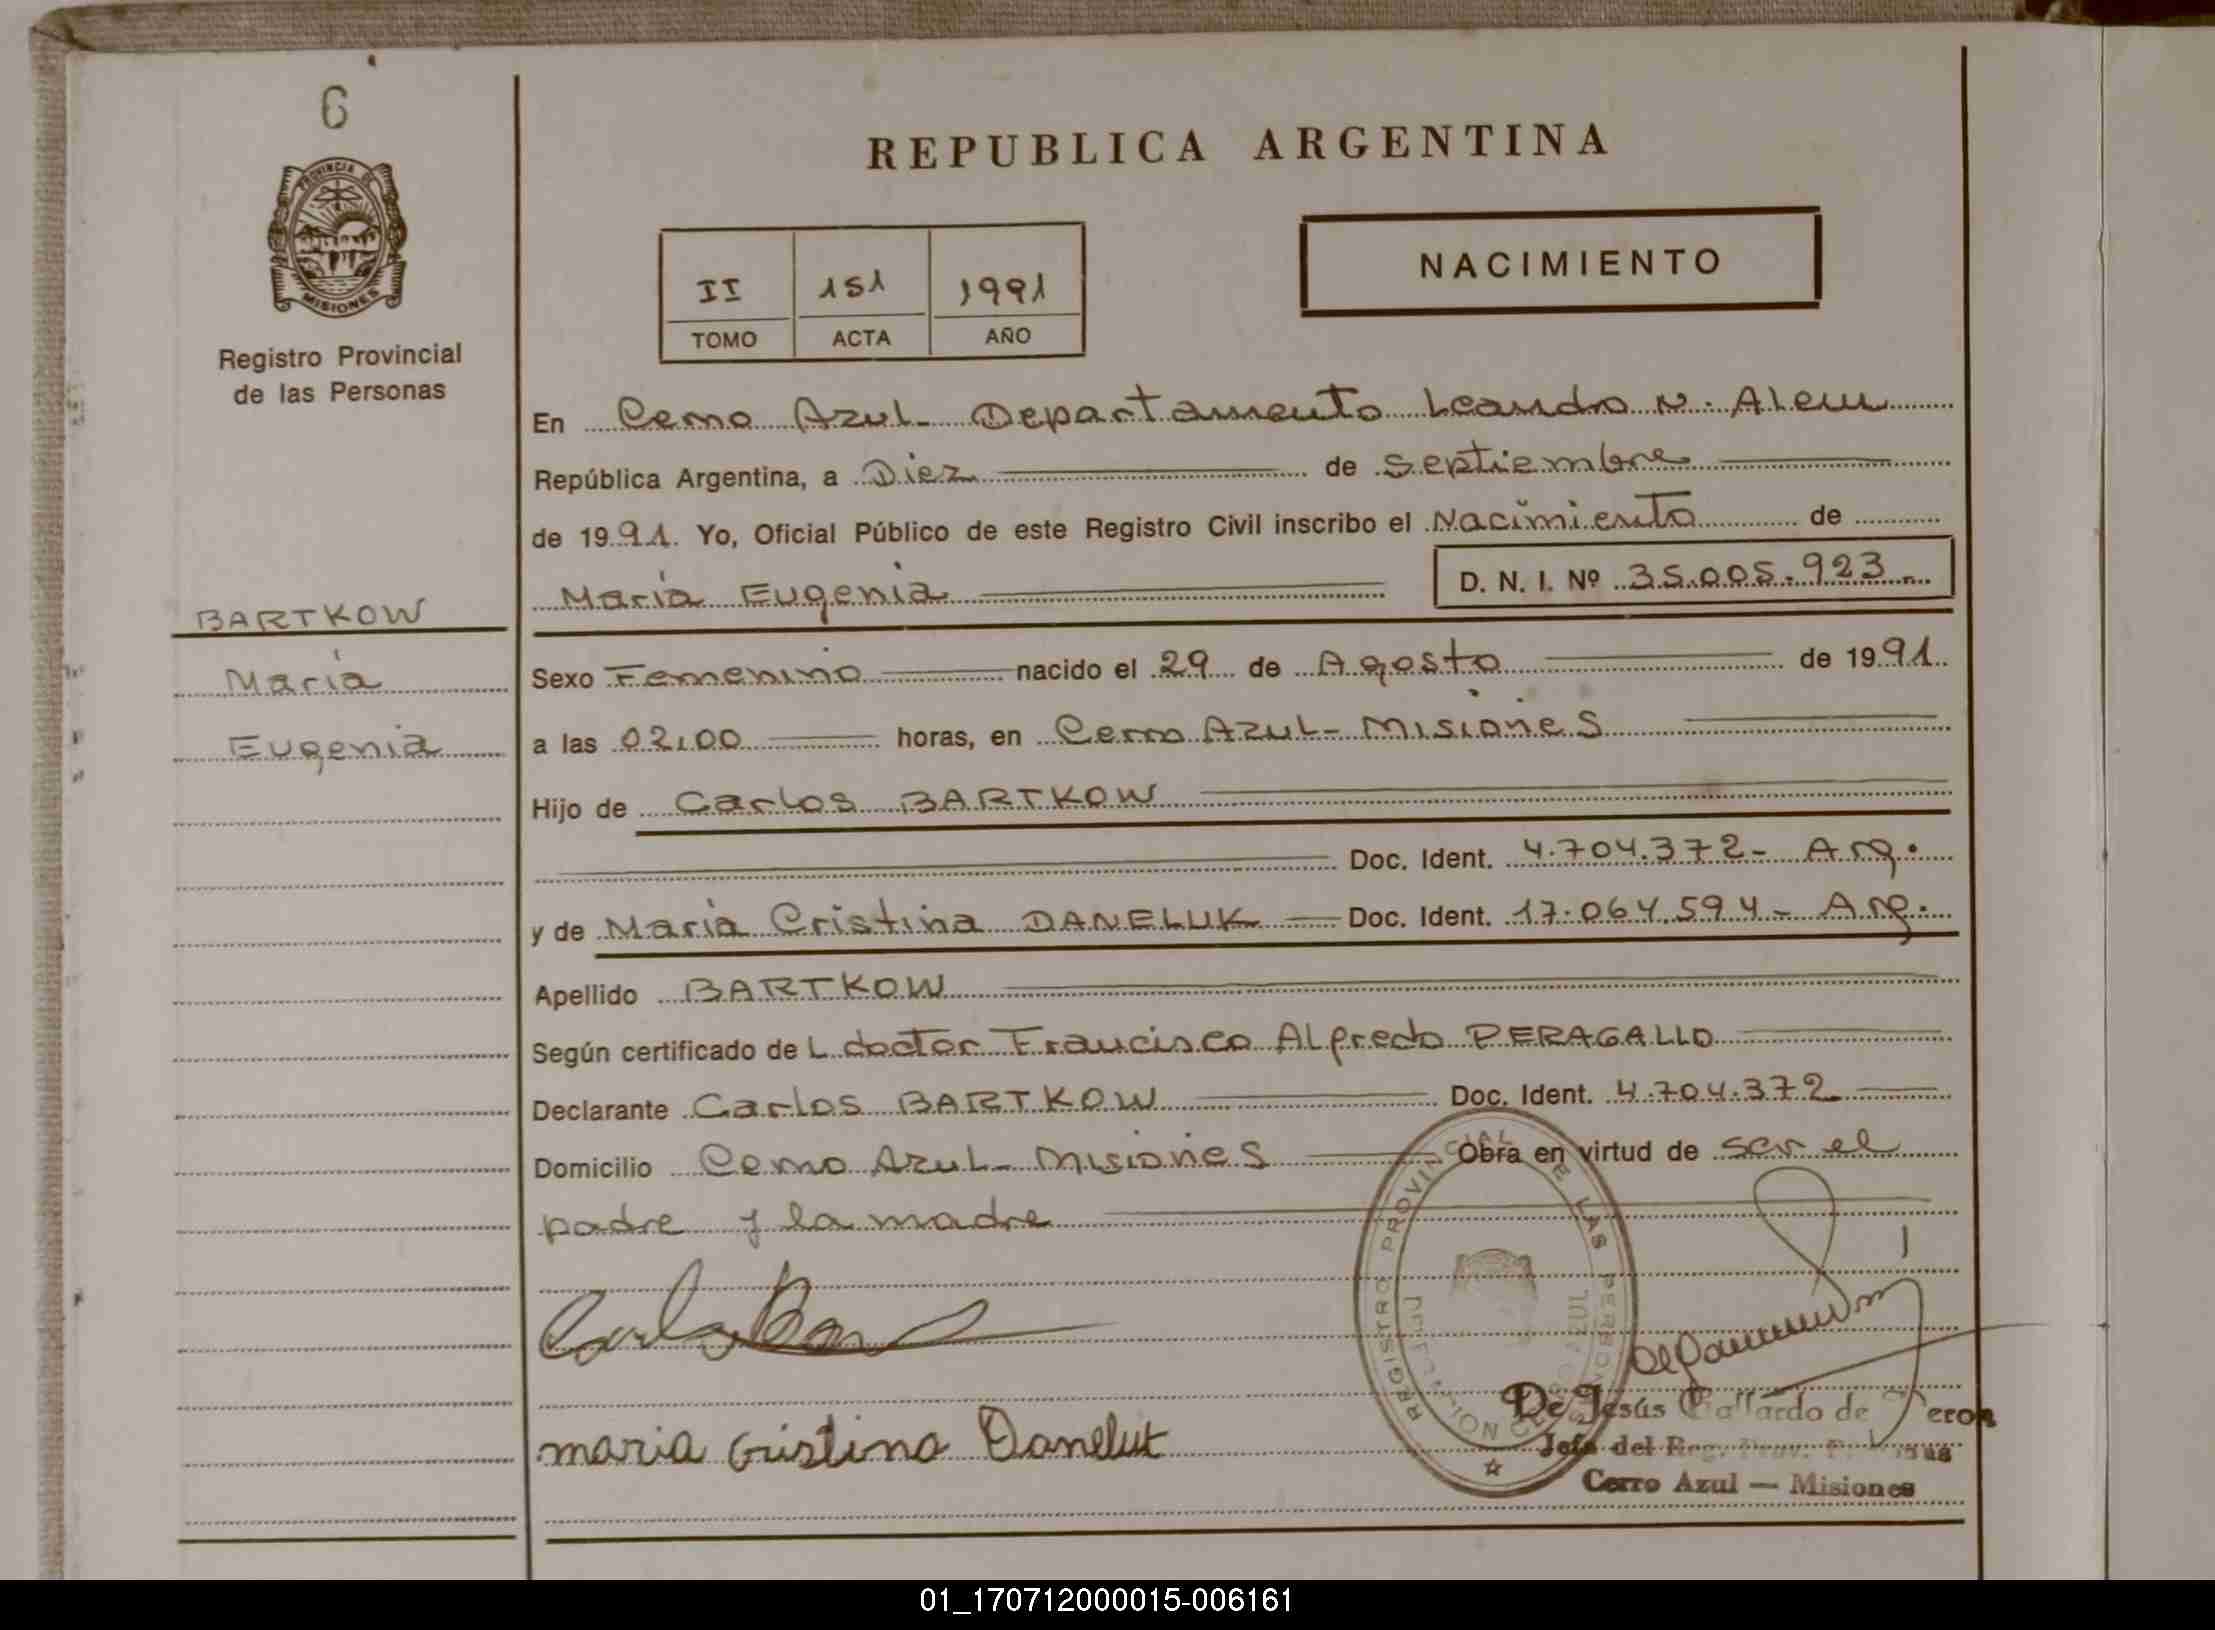 6
PROVINCIA DE
MISIONES
Registro Provincial
de las Personas
BARTKOW
María
Eugenia
REPUBLICA ARGENTINA
II 151 1991
TOMO ACTA AÑO
NACIMIENTO
En Cerro Azul - Departamento Leandro N. Alem
República Argentina, a Diez de Septiembre
de 1991. Yo, Oficial Público de este Registro Civil inscribo el Nacimiento de
María Eugenia D. N. I. Nº 35.005.923
Sexo Femenino nacido el 29 de Agosto de 1991.
a las 02,00 horas, en Cerro Azul - Misiones
Hijo de Carlos BARTKOW
Doc. Ident. 4.704.372 - Arg.
y de María Cristina DANELUK Doc. Ident. 17.064.594 - Arg.
Apellido BARTKOW
Según certificado de L doctor Francisco Alfredo PERAGALLO
Declarante Carlos BARTKOW Doc. Ident. 4.704.372
Domicilio Cerro Azul - Misiones Obra en virtud de ser el
padre y la madre
REGISTRO PROVINCIAL DE LAS PERSONAS
maria Cristina Daneluk
De Jesús Gallardo de Peron
Jefe del Reg. Prov. Personas
Cerro Azul — Misiones
01_170712000015-006161